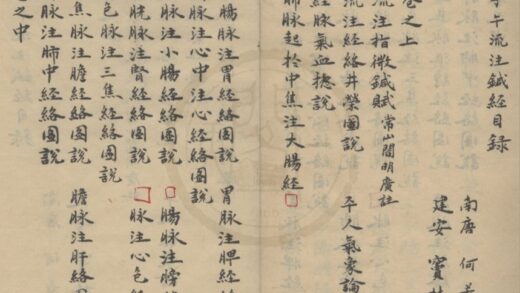 午流注鍼經目錄
南唐 何
建安 竇
卷之上
流注指微鍼賦 常山閻明廣註
流注經絡井榮圖說 平人氣象論
經脉氣血摠說
肺脉起於中焦注大腸經
腸脉注胃經絡圖說 胃脉注脾經
脉注心中注心經絡圖說
脉注小腸經絡圖說 腸脉注膀
胱脉注腎經絡圖說 脉注心包
包脉注三焦經絡圖說
焦脉注膽經絡圖說 膽脉注肝絡
脉注肺中經絡圖說
之中